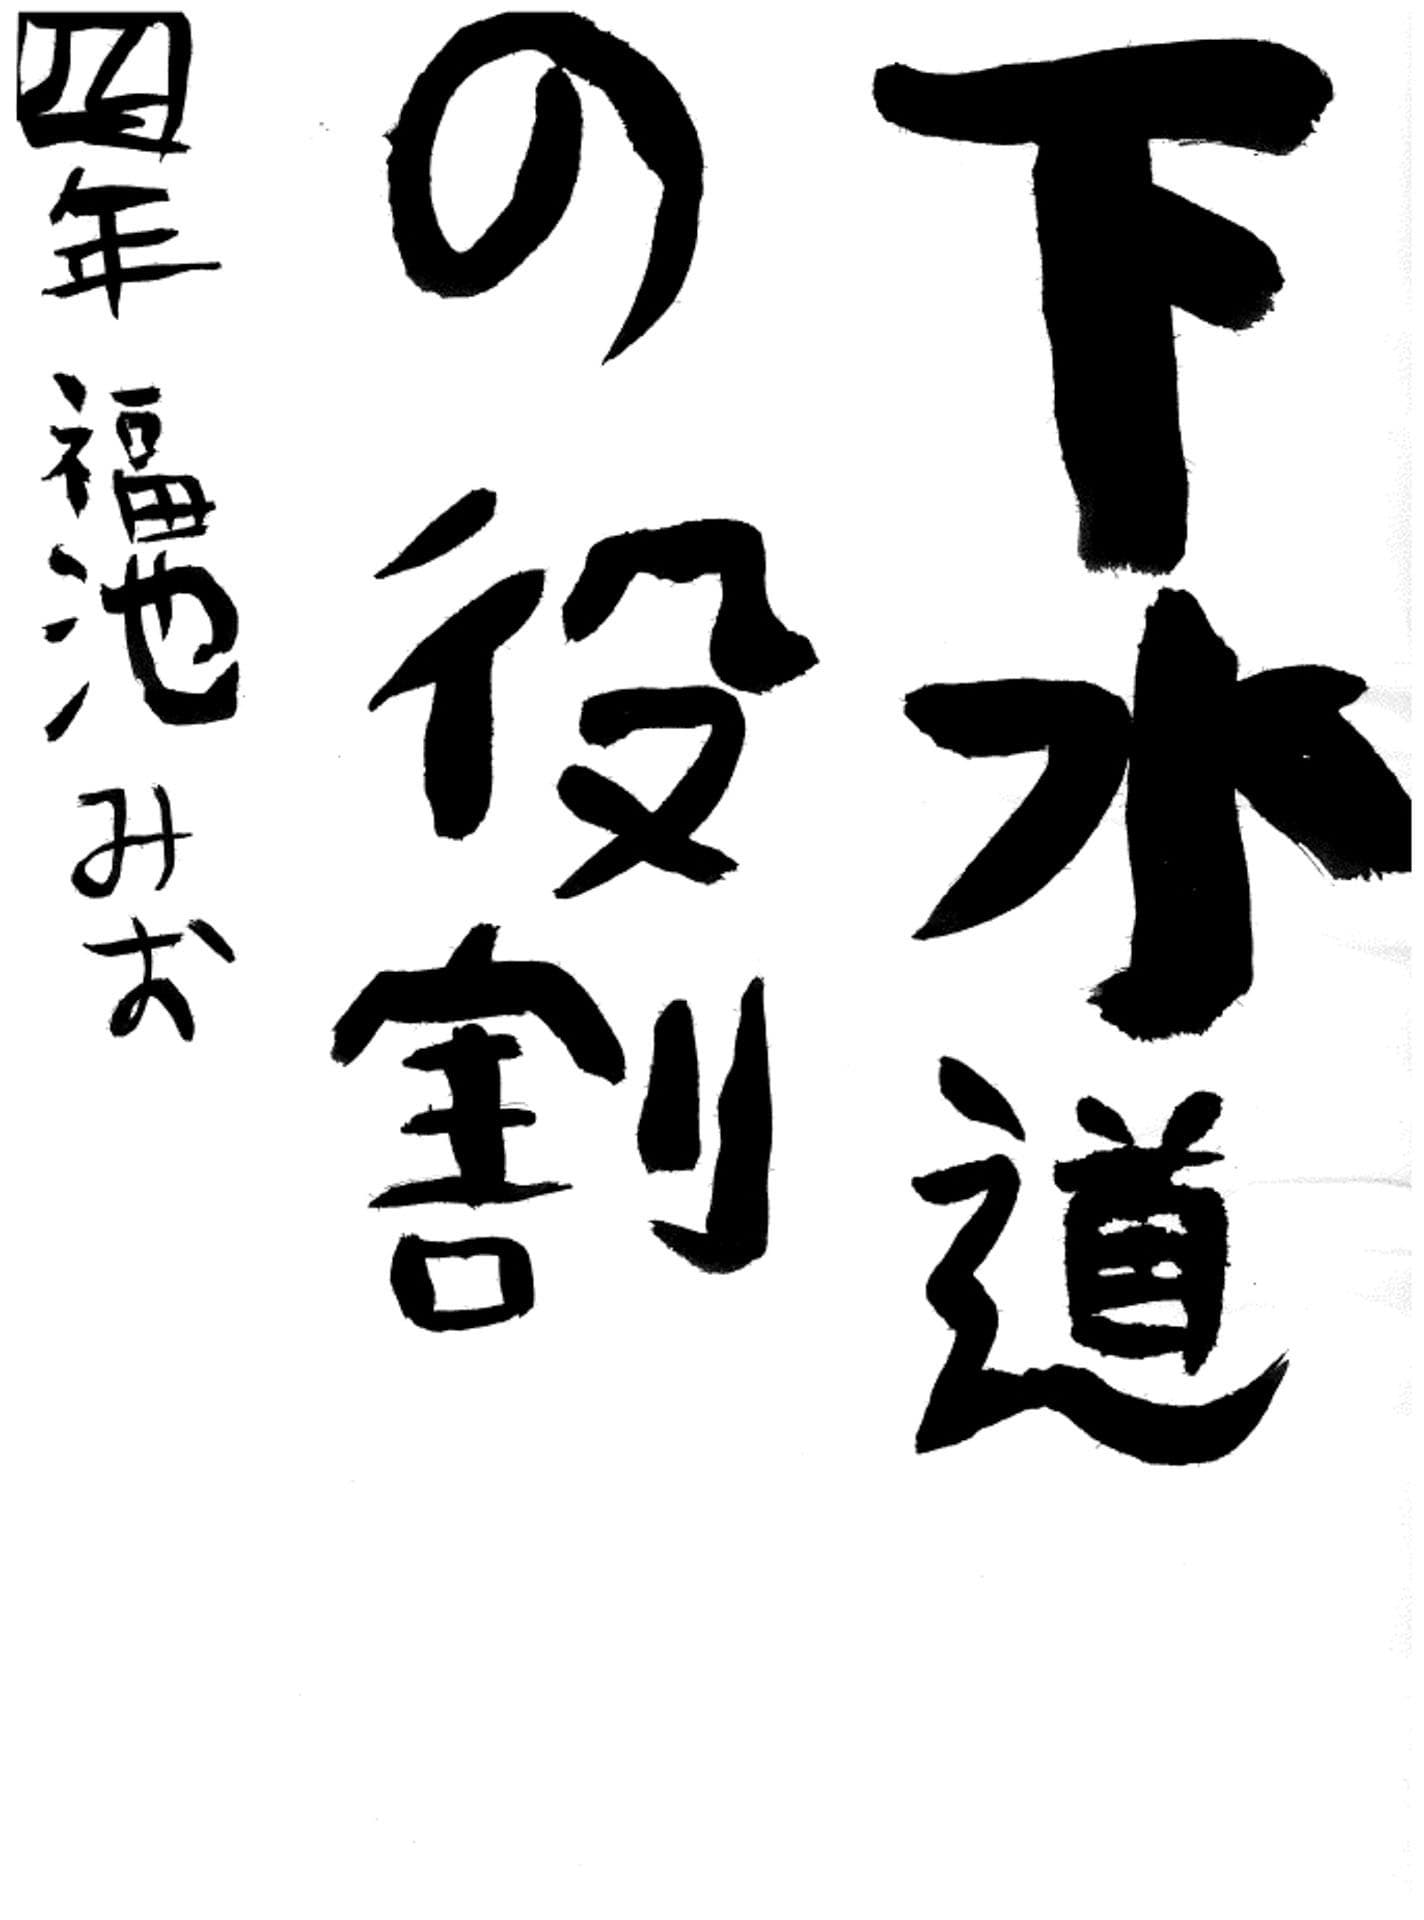 下水道
の役割
四年 福池 みお